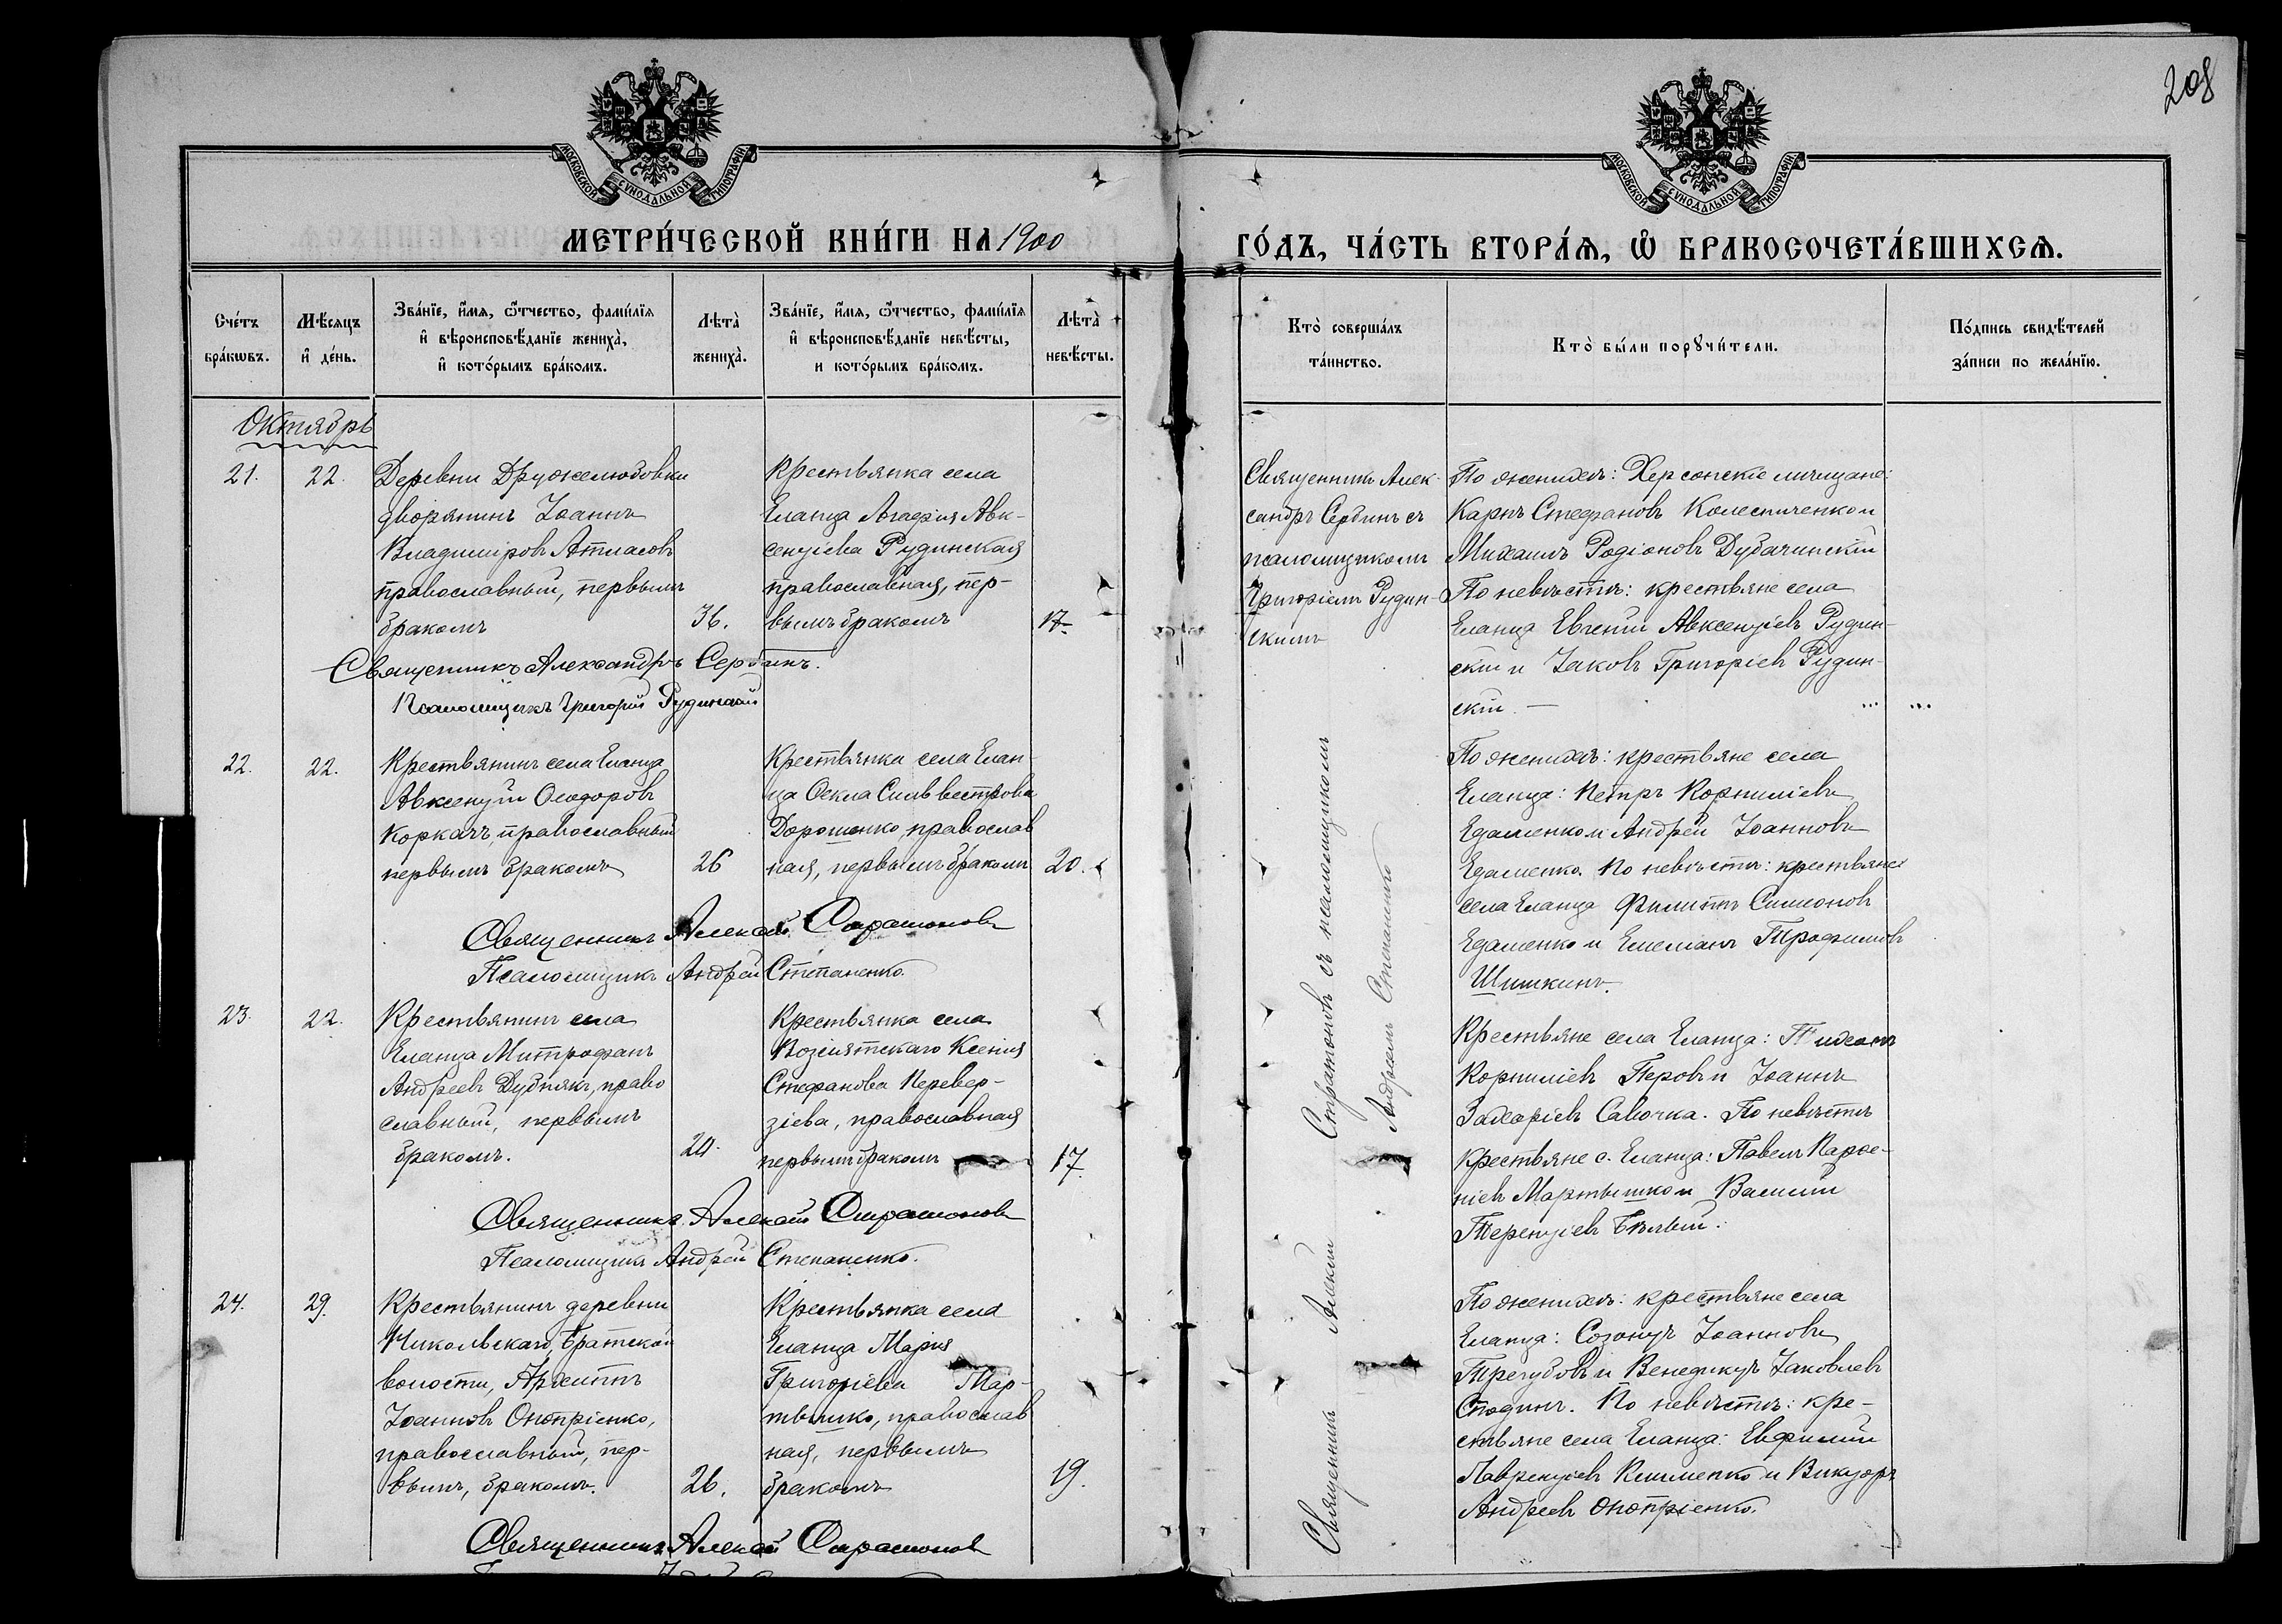 208
МОСКОВСКОЙ СѴНОДАЛЬНОЙ ТИПОГРАФІИ
МОСКОВСКОЙ СѴНОДАЛЬНОЙ ТИПОГРАФІИ
МЕТРИ́ЧЕСКОЙ КНИ́ГИ НА 1900
ГО́ДЪ, ЧА́СТЬ ВТОРА́Ѧ, Ѡ҆ БРАКОСОЧЕТА́ВШИХСѦ.
Сче́тъ
бра́кѡвъ.
Мѣ́сяцъ
и҆ де́нь.
Зва́нїе, и҆́мя, ѻ҆́тчество, фами́лїя
и҆ вѣроисповѣ́данїе жениха̀,
и҆ кото́рымъ бра́комъ.
Лѣта̀
жениха̀.
Зва́нїе, и҆́мя, ѻ҆́тчество, фами́лїя
и҆ вѣроисповѣ́данїе невѣ́сты,
и кото́рымъ бра́комъ.
Лѣта̀
невѣ́сты.
Кто̀ соверша́лъ
та́инство.
Кто̀ бы́ли порꙋчи́тели.
По́дпись свидѣ́телей
за́писи по жела́нїю.
Октябрь
21.
22.
Деревни Дружелюбовки
дворянинъ Іоаннъ
Владиміровъ Атласовъ
православный, первымъ
бракомъ
36.
Крестьянка села
Еланца Агафія Авк-
сентіева Рудинская
православная, пер-
вымъ бракомъ
17.
Священникъ Алек-
сандръ Сербинъ съ
псаломщикомъ
Григоріемъ Рудин-
скимъ
По женихѣ: Херсонскіе мѣщане:
Карпъ Стефановъ Колесниченко и
Михаилъ Родіоновъ Дубачинскій
По невѣстѣ: крестьяне села
Еланца Евгеній Авксентіевъ Рудин-
скій и Іаковъ Григоріевъ Рудин-
скій. —
Священникъ Александръ Сербинъ.
Псаломщикъ Григорій Рудинскій
22.
22.
Крестьянинъ села Еланца
Авксентій Ѳеодоровъ
Коркачъ, православный
первымъ бракомъ
26
Крестьянка села Елан-
ца Ѳекла Сильвестрова
Дорошенко, православ
ная, первымъ бракомъ
20.
По женихѣ: крестьяне села
Еланца: Петръ Корниліевъ
Едаменко и Андрей Іоанновъ
Едаменко. По невѣстѣ: крестьяне
села Еланца Филиппъ Симеоновъ
Едаменко и Емеліанъ Трофимовъ
Шишкинъ.
Священникъ Алексій Стратоновъ
Псаломщикъ Андрей Степаненко.
23.
22.
Крестьянинъ села
Еланца Митрофанъ
Андреевъ Дубнякъ, право
славный, первымъ
бракомъ.
24.
Крестьянка села
Возсіятскаго Ксенія
Стефанова Перевер-
зіева, православная
первымъ бракомъ
17.
Крестьяне села Еланца:
Корниліевъ Перовъ и Іоаннъ
Захаріевъ Савочка. По невѣстѣ
Крестьяне с. Еланца: Павелъ Парѳе-
ніевъ Мартышко и Василій
Терентіевъ Бѣлый.
Священникъ Алексій Стратоновъ
Псаломщикъ Андрей Степаненко.
24.
29.
Крестьянинъ деревни
Никольскаго, Братской
волости, Архиппъ
Іоанновъ Онопріенко,
православный, пер-
вымъ, бракомъ.
26.
Крестьянка села
Еланца Марія
Григоріева Мар-
тышко, православ
ная, первымъ
бракомъ
19.
По женихѣ: крестьяне села
Еланца: Созонтъ Іоанновъ
Трегубовъ и Венедиктъ Іаковлевъ
Сподинъ. По невѣстѣ: кре-
стьяне села Еланца: Евфимій
Лаврентіевъ Клименко и Викторъ
Андреевъ Онопріенко.
Священникъ Алексій Стратоновъ
Священникъ Алексій Стратоновъ съ псаломщикомъ
Андреемъ Степаненко